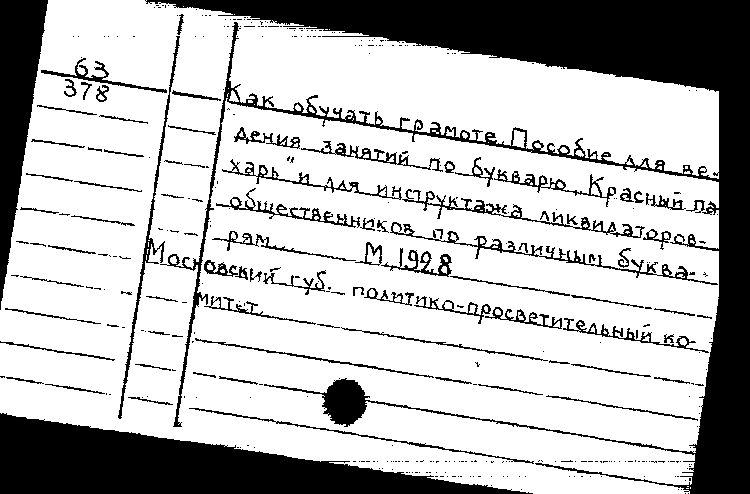 63
378
Как обучать грамоте. Пособие для ве-
дения занятий по букварю „Красный па
харь" и для инструктажа ликвидаторов-
общественников по различным буква-
рям... М. 1928
Московский губ. политико-просветительный ко-
митет.